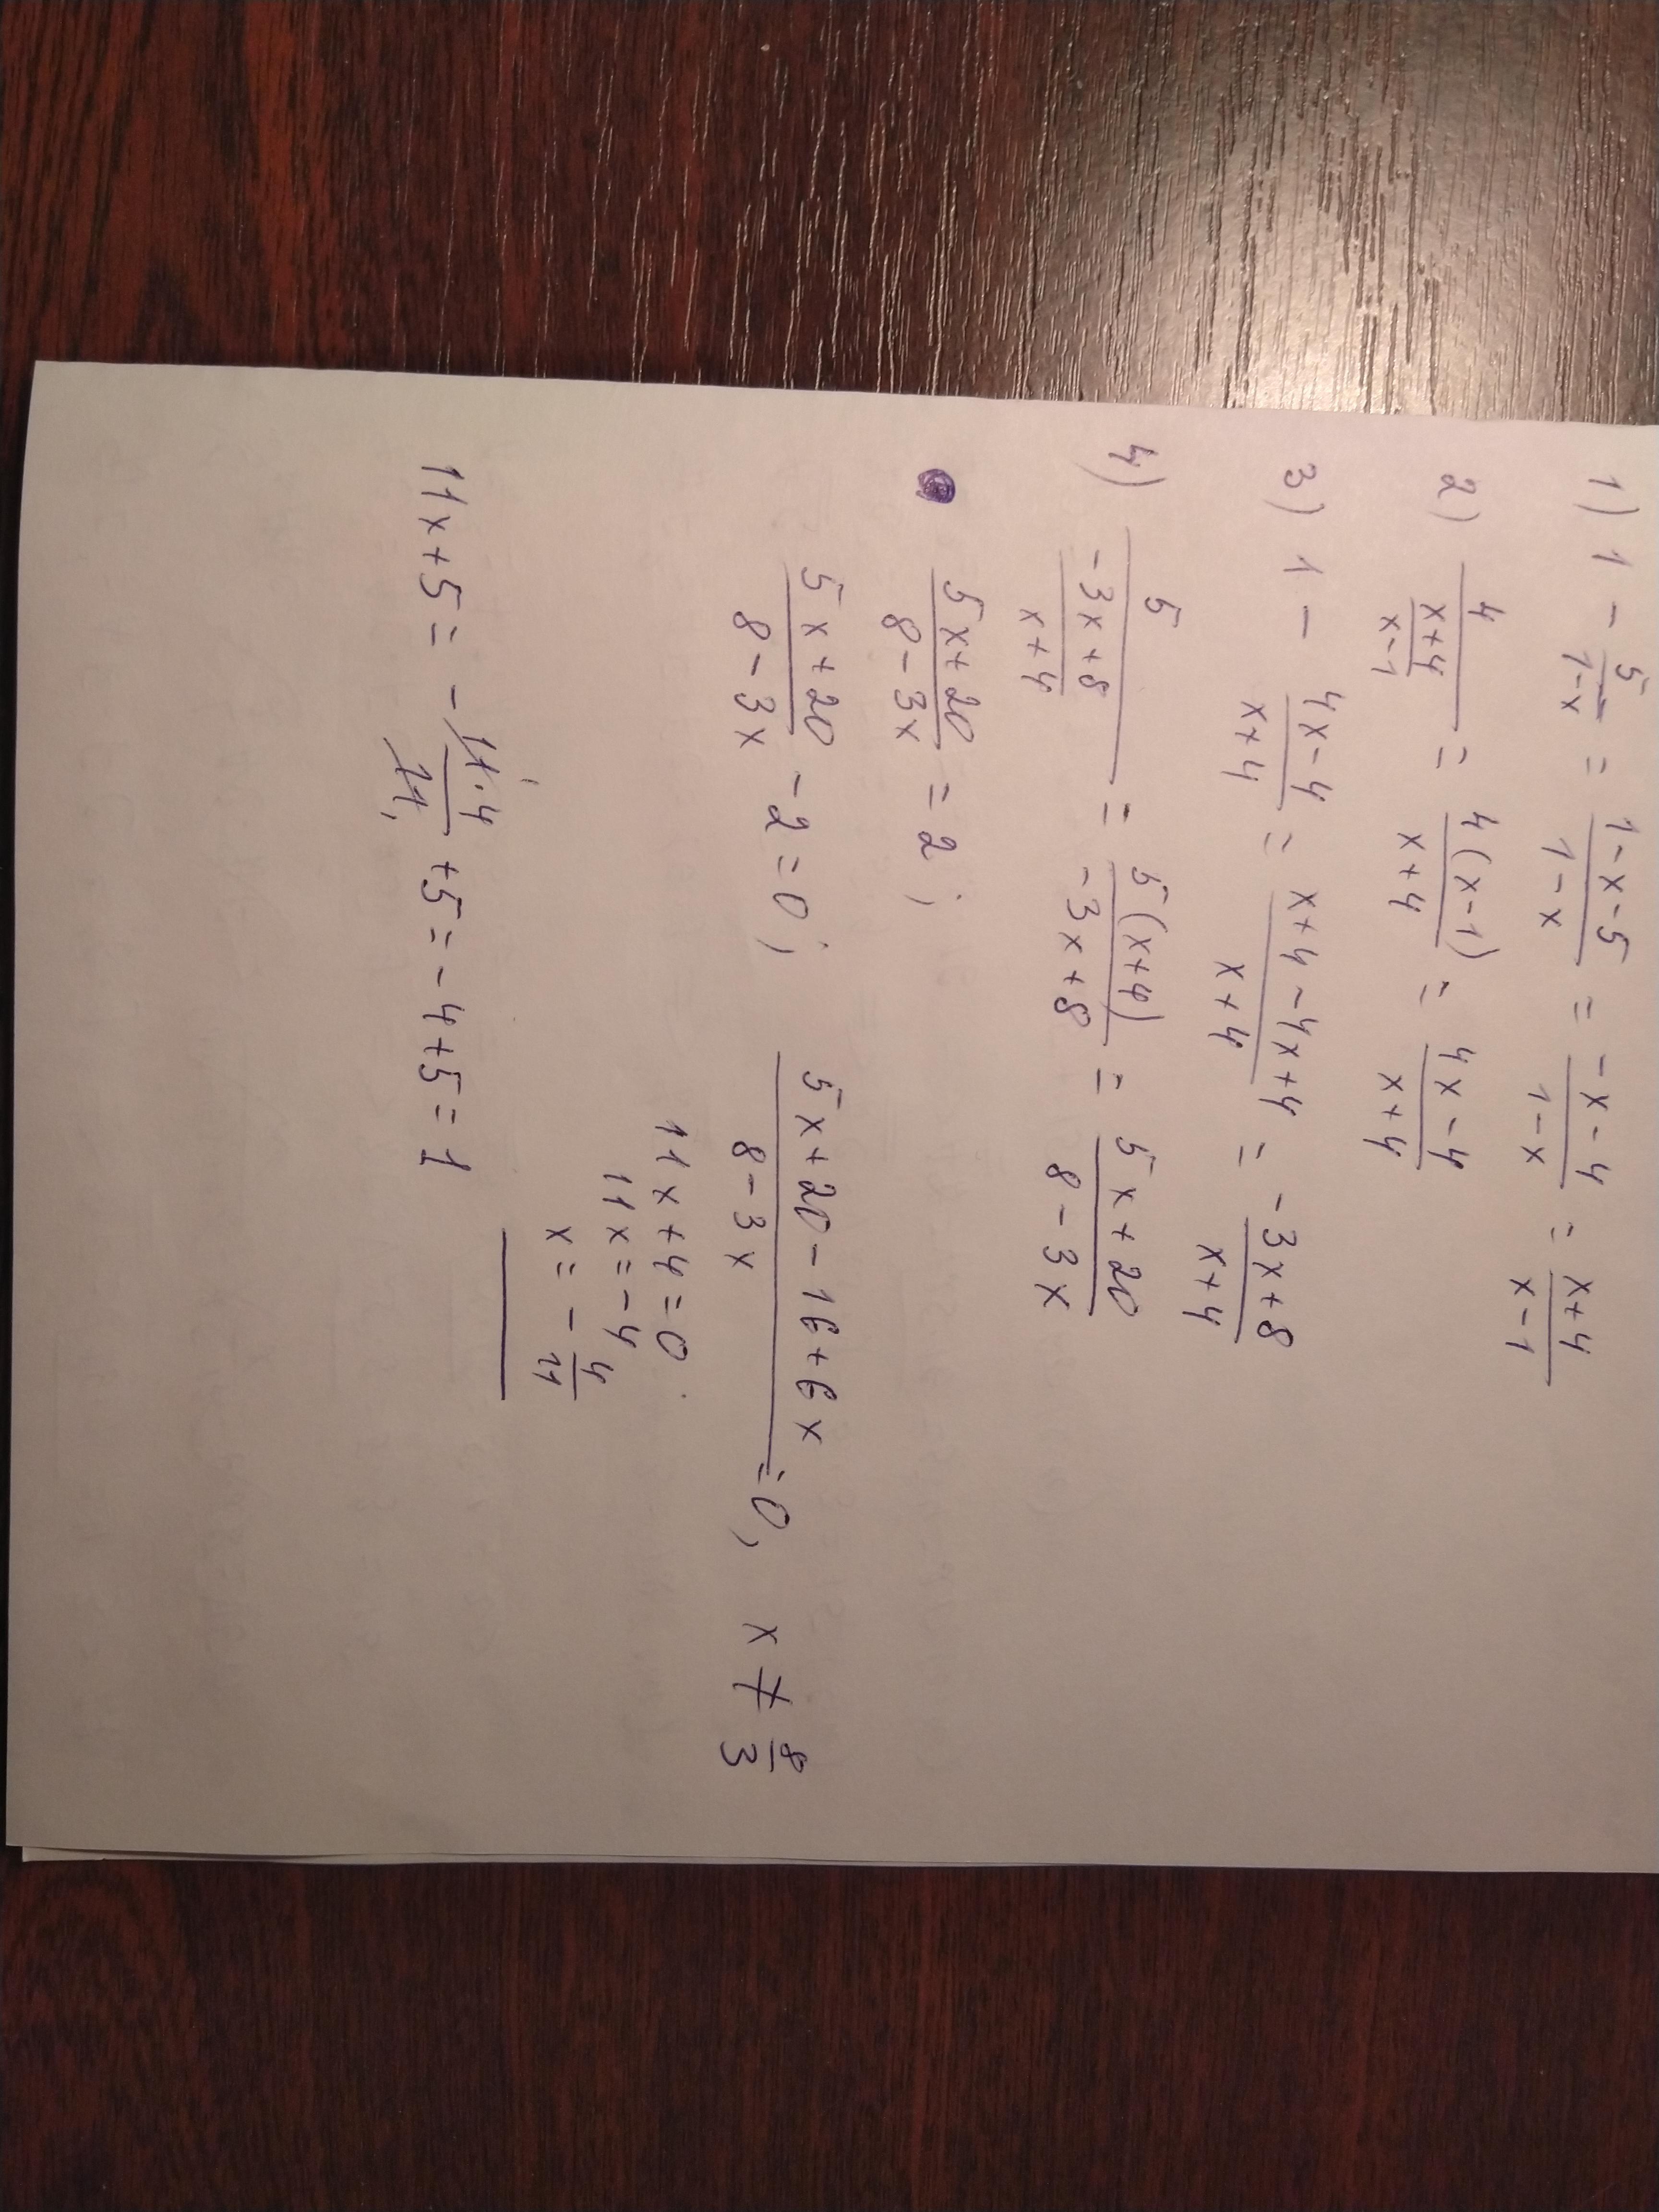 1) 1 - 5/(1-x) = (1-x-5)/(1-x) = (-x-4)/(1-x) = (x+4)/(x-1)
2) 4/((x+4)/(x-1)) = 4(x-1)/(x+4) = (4x-4)/(x+4)
3) 1 - (4x-4)/(x+4) = (x+4-4x+4)/(x+4) = (-3x+8)/(x+4)
4) 5/((-3x+8)/(x+4)) = 5(x+4)/(-3x+8) = (5x+20)/(8-3x)
(5x+20)/(8-3x) = 2;
(5x+20)/(8-3x) - 2 = 0; (5x+20-16+6x)/(8-3x) = 0, x ≠ 8/3
11x+4=0
11x=-4
x = -4/11
11x+5 = -(11·4)/11 + 5 = -4+5 = 1